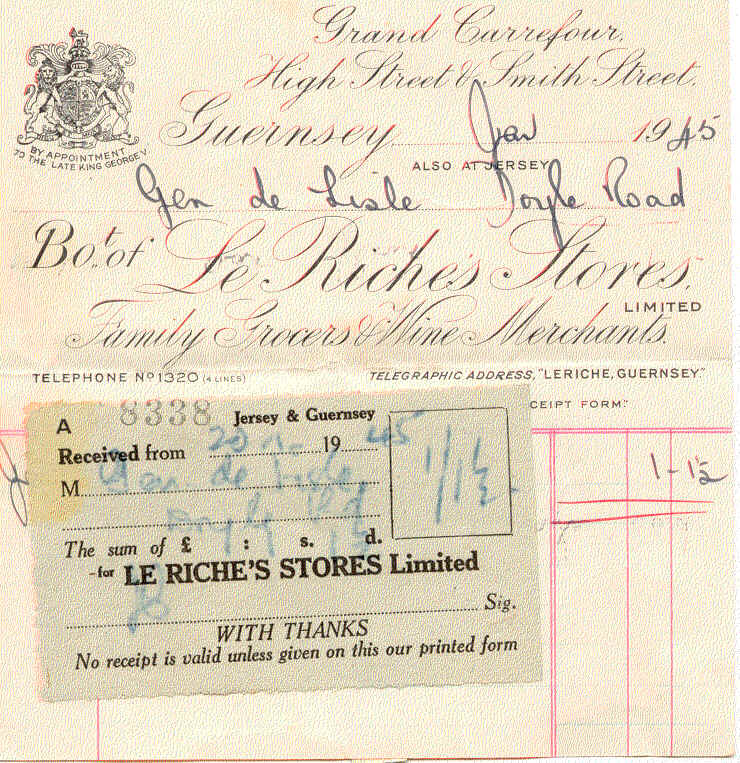 Grand Carrefour,
High Street & Smith Street.
Guernsey Jan 1945
BY APPOINTMENT
TO THE LATE KING GEORGE V
ALSO AT JERSEY
Gen de Lisle Doyle Road
Bot. of Le Riche's Stores,
LIMITED
Family Grocers & Wine Merchants.
TELEPHONE No 1320 (4 LINES)
TELEGRAPHIC ADDRESS, "LERICHE, GUERNSEY."
CEIPT FORM."
1-1½
A 8338 Jersey & Guernsey
Received from 20 1945
M Gen de Lisle
Doyle Rd
1/1½
The sum of £ : s. d.
-for LE RICHE'S STORES Limited
Sig.
WITH THANKS
No receipt is valid unless given on this our printed form